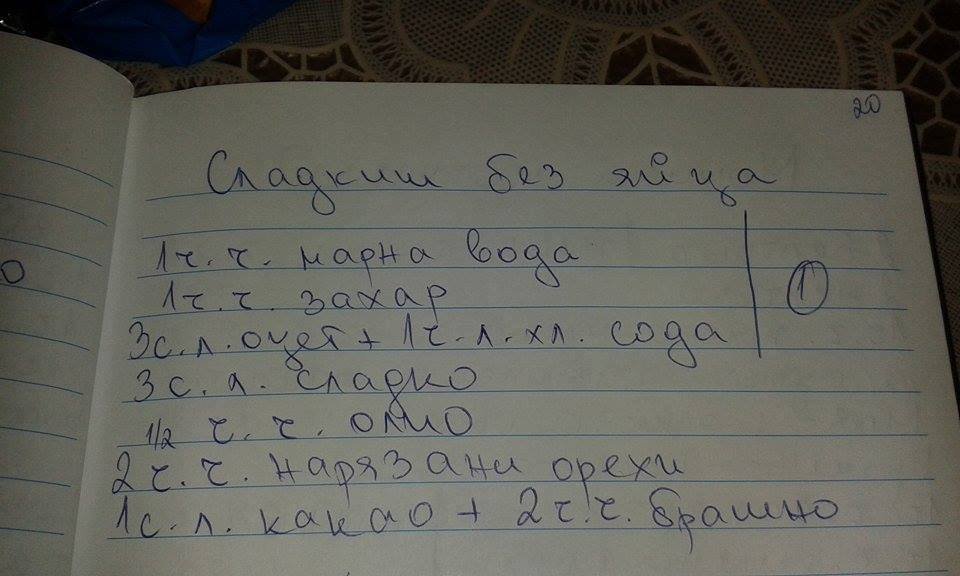 20
Сладкиш без яйца
1 ч. ч. марна вода
1 ч. ч. захар
①
3 с. л. оцет + 1 ч. л. хл. сода
3 с. л. сладко
1/2 ч. ч. олио
2 ч. ч. нарязани орехи
1 с. л. какао + 2 ч. ч. брашно